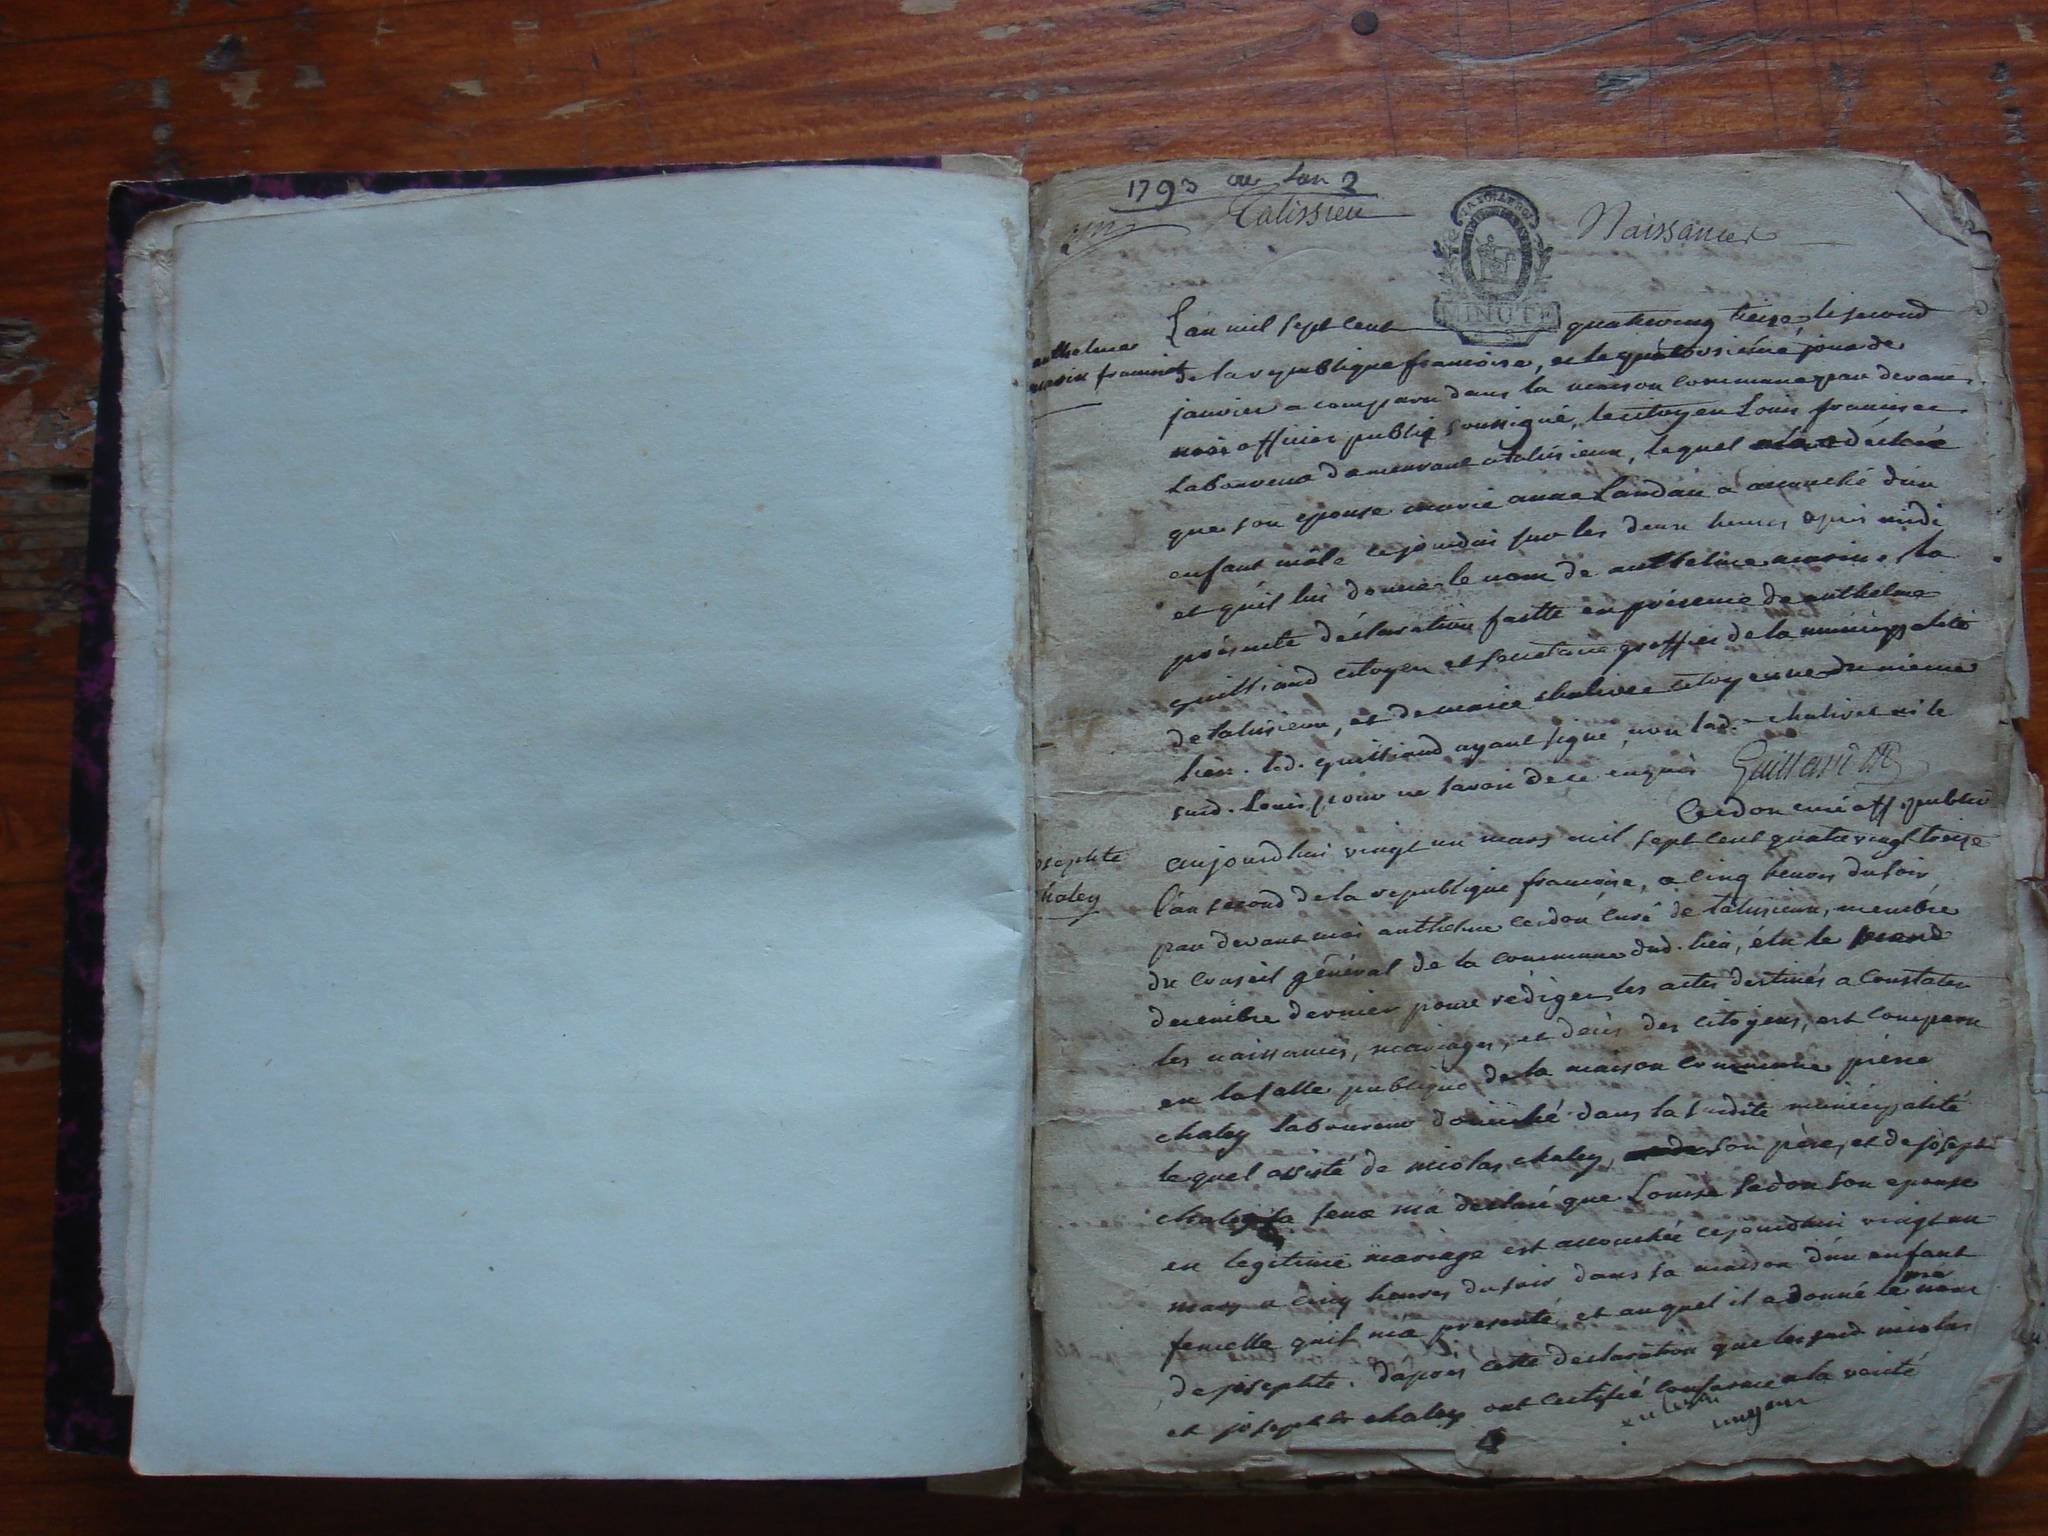 1793 ou l'an 2
Talissieu
Naissances
LA LOI LE ROI
MINUTE
anthelme
marin francisct
L'an mil sept cent quatrevingt treize le second
de la republique francoise, et le quatorsieme jour de
janvier a comparu dans la maison commune par devant
moi officier public soussigné, le citoyen Louis francisct
laboureur demeurant a talissieu, lequel a déclaré
que son epouse marie anne Landai a accouché d'un
enfant mâle cejourdui sur les deux heures après midi
et qu'il lui donne le nom de anthelme marin. la
présente déclaration faitte en présence de anthelme
guilliand citoyen et secretaire greffier de la municipalité
de talissieu, et de marie chalivet citoyenne du même
lieu. led. guilliand ayant signé, non lad. chalivet ni le
sud. Louis pour ne savoir de ce enquis
Cerdon curé off. public
josephte
chaley
aujourdhui vingt un mars mil sept cent quatrevingt treize
l'an second de la republique francoise, a cinq heures du soir
par devant moi anthelme cerdon curé de talissieu, membre
du conseil général de la commune dud. lieu, élu le second
decembre dernier pour rédiger les actes destinés a constater
les naissances, mariages, et decès des citoyens, est comparu
en la salle publique de la maison commune pierre
chaley laboureur domicilié dans la susdite municipalité
lequel assisté de nicolas chaley, son père, et de joseph
chaley sa seux m'a declaré que Louise Cadon son epouse
en legitime mariage est accouchée cejourdhui vingt un
mars a cinq heures du soir dans sa maison d'un enfant
femelle quil ma presenté, et auquel il a donné le nom
de josephte. d'après cette declaration que les sud. nicolas
et josephte chaley ont certifié conforme a la verité